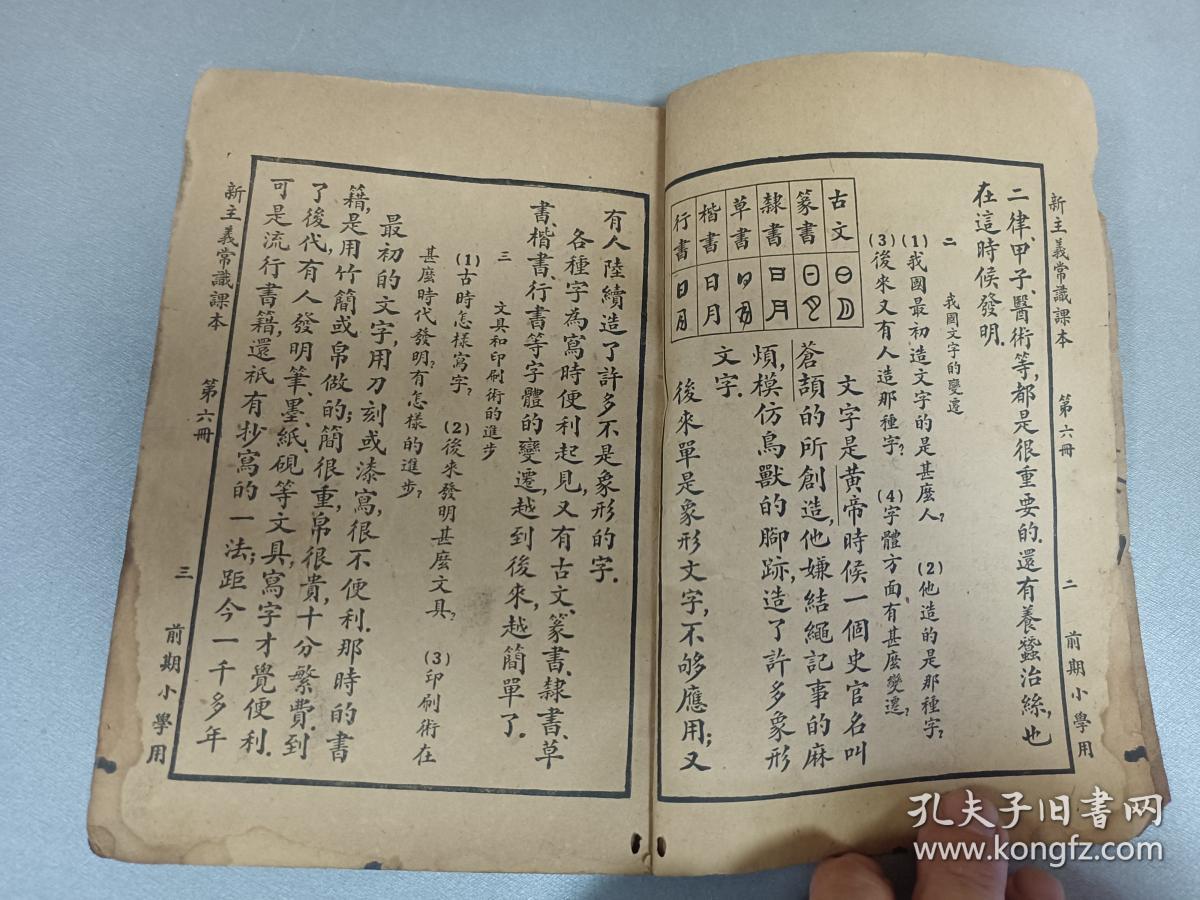 新主義常識課本 第六冊 二 前期小學用
二律甲子、醫術等,都是很重要的.還有養蠶治絲,也
在這時候發明.
二 我國文字的變遷
(1)我國最初造文字的是甚麼人? (2)他造的是那種字?
(3)後來又有人造那種字? (4)字體方面,有甚麼變遷?
文字是黃帝時候一個史官名叫
蒼頡的所創造,他嫌結繩記事的麻
煩,模仿鳥獸的腳跡,造了許多象形
文字.
後來單是象形文字,不够應用;又
古文
篆書
隸書 日月
草書
楷書 日月
行書 日月
有人陸續造了許多不是象形的字.
各種字為寫時便利起見,又有古文、篆書、隸書、草
書、楷書、行書等字體的變遷,越到後來,越簡單了.
三 文具和印刷術的進步
(1)古時怎樣寫字? (2)後來發明甚麼文具? (3)印刷術在
甚麼時代發明?有怎樣的進步?
最初的文字,用刀刻或漆寫,很不便利.那時的書
籍,是用竹簡或帛做的;簡很重,帛很貴,十分繁費.到
了後代,有人發明筆、墨、紙、硯等文具,寫字才覺便利.
可是流行書籍,還祇有抄寫的一法;距今一千多年
新主義常識課本 第六冊 三 前期小學用
孔夫子旧书网
www.kongfz.com